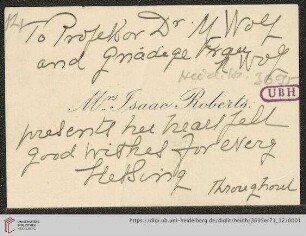 To Professor Dr. M Wolf
and Gnädige Frau
Wolf
Heid. Hs. 3695
UBH
Mrs Isaac Roberts.
presents her heart felt
good wishes for every
Blessing
Throughout
https://digi.ub.uni-heidelberg.de/diglit/heidhs3695er71_12/0001